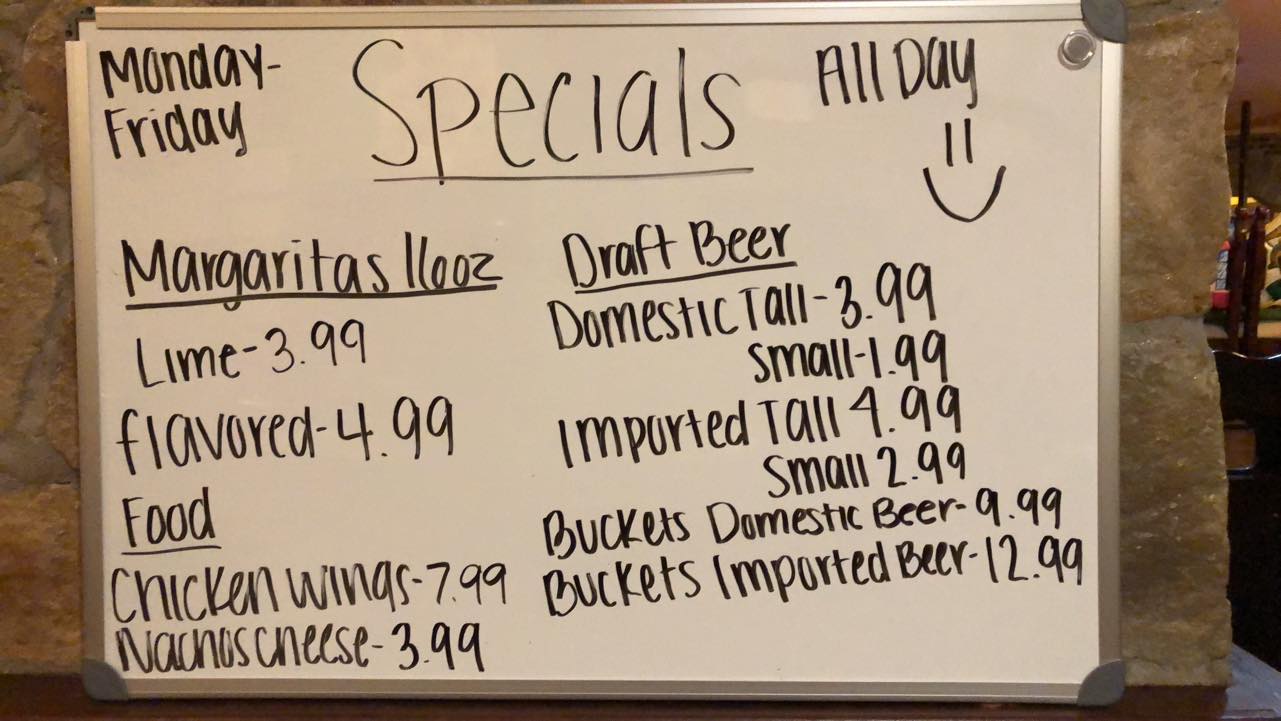 Monday-
Friday
Specials
All Day
Margaritas 16oz
Lime-3.99
flavored-4.99
Food
Chicken wings-7.99
Nachos cheese-3.99
Draft Beer
Domestic Tall-3.99
Small-1.99
Imported Tall 4.99
Small 2.99
Buckets Domestic Beer-9.99
Buckets Imported Beer-12.99